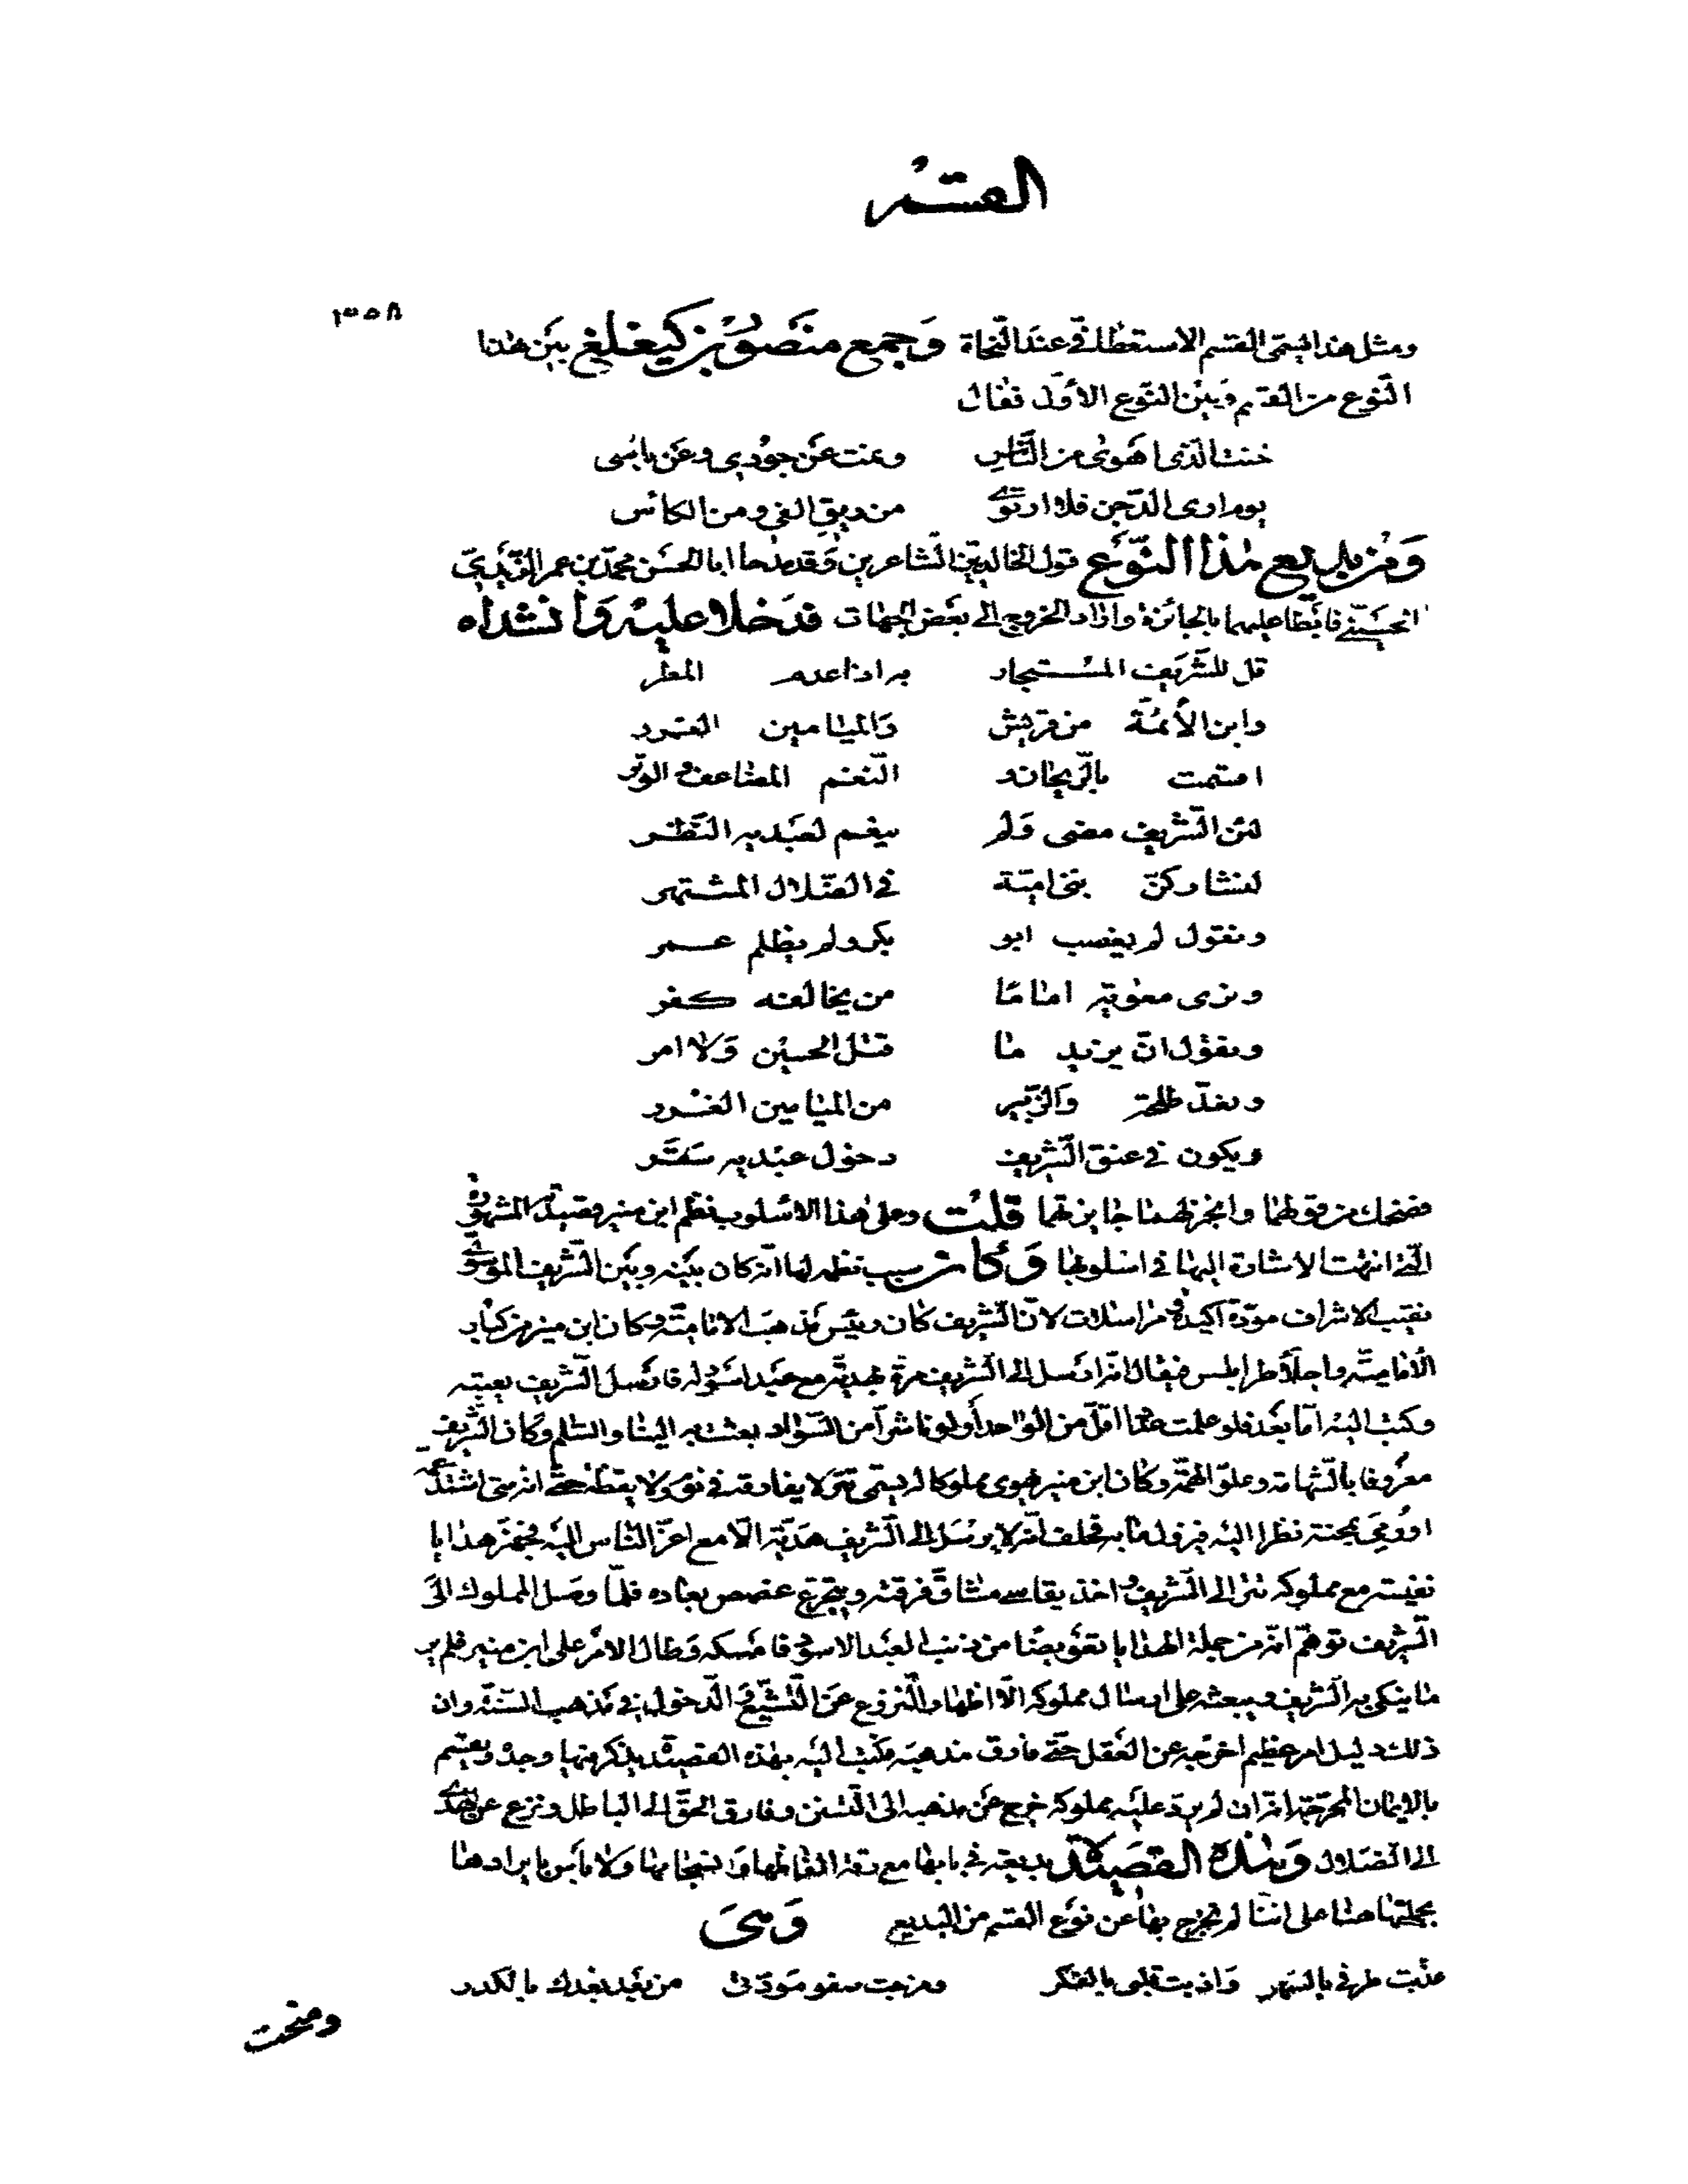 القسم
٣٥٨
ومثل هذا يسمى القسم الاستعطافي عند النحاة وجمع منصور بن كيغلغ بين هذا
النوع من القسم وبين النوع الأول فقال
خنت الذي اهوى من الناس وعنت عن جودي وعن باسي
يوم ارى الدجن فلا ارتوي من ريق الفي ومن الكاس
ومن بديع هذا النوع قول الخالديين الشاعرين وقد مدحا ابا الحسن محمد بن عمر الزيدي
الحسيني فابطا عليهما بالجائزة واراد الخروج الى بعض الجهات فدخلا عليه وانشداه
قل للشريف المستجار به اذا عدم المطر
وابن الأئمة من قريش والميامين الغرر
اقسمت بالريحان و النغم المضاعف والوتر
لئن الشريف مضى ولم ينعم لعبديه النظر
لنشاركن بني امية في الضلال المشتهر
ونقول لم يغصب ابو بكر ولم يظلم عمر
ونرى معوية اماما من يخالفه كفر
ونقول ان يزيد ما قتل الحسين ولا امر
ونعد طلحة والزبير من الميامين الغرر
ويكون في عنق الشريف دخول عبديه سقر
فضحك من قولهما وانجز لهما جايزتهما قلت وعلى هذا الاسلوب نظم ابن منير قصيدته المشهورة
التي انتهت الاشارة اليها في اسلوبها وكان سبب نظمه لها انه كان بينه وبين الشريف الموسوي
نقيب الاشراف مودة اكيدة ومراسلات لان الشريف كان رئيس مذهب الامامية وكان ابن منير من كبار
الامامية واجلاء طرابلس فيقال انه ارسل الى الشريف مرة بهدية مع عبد اسود له فارسل الشريف يعيبه
وكتب اليه اما بعد فلو علمت عددا اقل من الواحد أو لونا شرا من السواد بعثت به الينا والسلم وكان الشريف
معروفا بالشهامة وعلو الهمة وكان ابن منير يهوى مملوكا له يسمى تتر لا يفارقه في نوم ولا يقظة حتى انه متى اشتد غمه
او رمي بمحنة نظر اليه فيزول ما به فحلف انه لا يرسل الى الشريف هدية الا مع اعز الناس اليه فجهز هدايا
نفيسة مع مملوكه تتر الى الشريف واخذ يقاسي مشاق فرقته ويتجرع غصص بعاده فلما وصل المملوك الى
الشريف توهم انه من جملة الهدايا تعويضا من ذنب العبد الاسود فامسكه وطال الامر على ابن منير فلم ير
ما ينكي به الشريف ويبعثه على ارسال مملوكه الا اظهار النزوع عن التشيع والدخول في مذهب السنة وان
ذلك دليل امر عظيم اخرجه عن العقل حتى فارق مذهبه فكتب اليه بهذه القصيدة يذكر فيها وجده ويقسم
بالايمان المحرجة انه ان لم يرد عليه مملوكه خرج عن مذهبه الى التسنن وفارق الحق الى الباطل ونزع عن الهدى
الى الضلال وهذه القصيدة بديعة في بابها مع رقة الفاظها وانسجامها ولا باس بايرادها
بجملتها هنا على اننا لم نخرج بها عن نوع القسم من البديع وهي
عذبت طرفي بالسهر واذبت قلبي بالفكر ومزجت صفو مودتي من بعد بعدك بالكدر
ومنحت